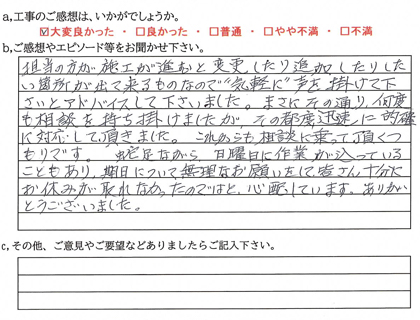 a,工事のご感想は、いかがでしょうか。
☑大変良かった ・ □良かった ・ □普通 ・ □やや不満 ・ □不満
b,ご感想やエピソード等をお聞かせ下さい。
担当の方が施工が進むと変更したり追加したりした
い箇所が出て来るものなので"気軽に"声を掛けて下
さいとアドバイスして下さいました。まさにその通り、何度
も相談を持ち掛けましたが、その都度迅速に的確
に対応して頂きました。これからも相談に乗って頂くつ
もりです。蛇足ながら、日曜日に作業が入っている
こともあり、期日について無理なお願いをして皆さん十分に
お休みが取れなかったのではと、心配しています。ありがと
うございました。
c,その他、ご意見やご要望などありましたらご記入下さい。